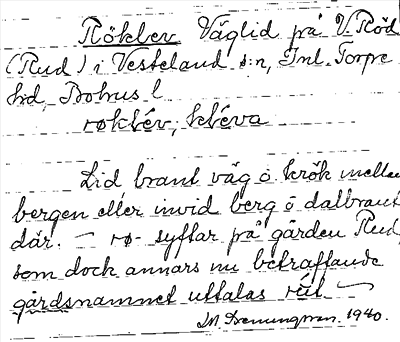 Röklev Väglid på V. Röd
(Rud) i Vesteland s:n, Inl. Torpe
hd, Bohus l
røklév, kléva
Lid brant väg o. krök mellan
bergen eller invid berg o dalbrant
där. — rø- syftar på gården Rud,
som dock annars nu beträffande
gårdsnamnet uttalas
1940.